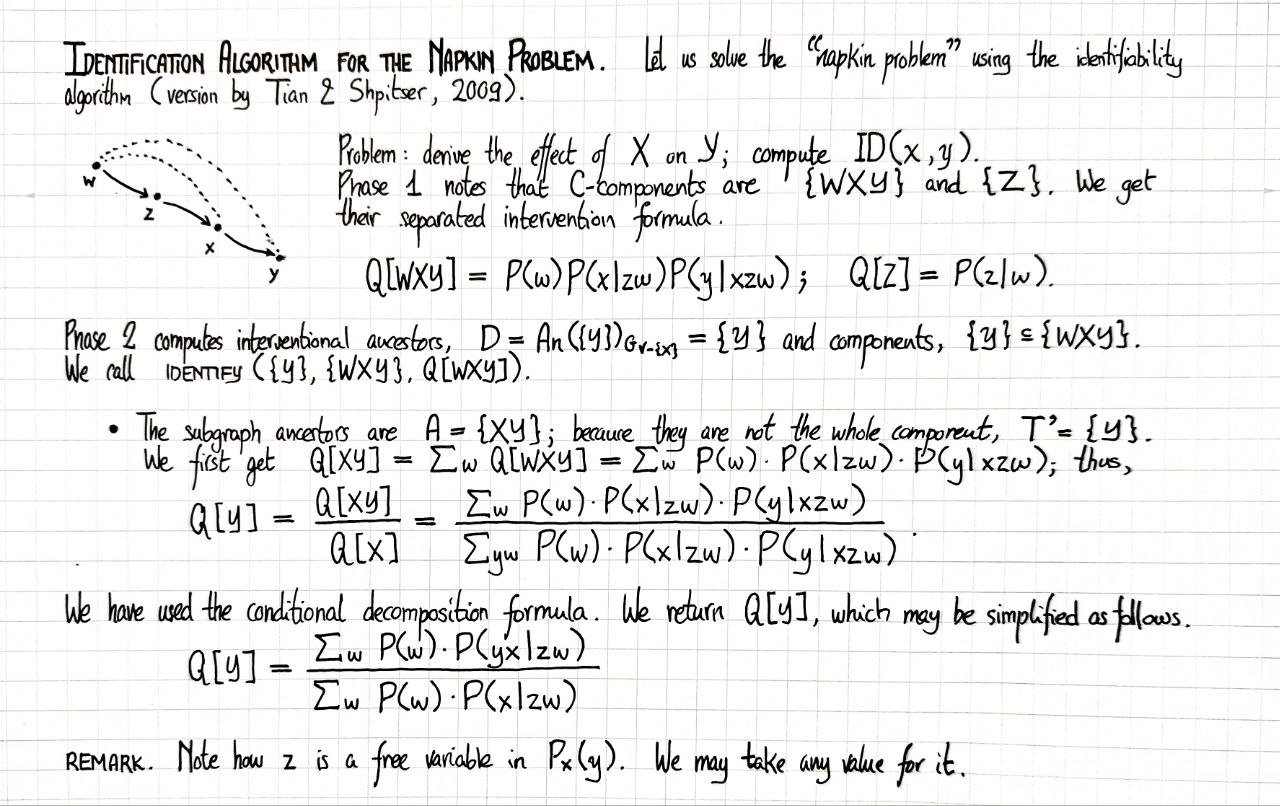 IDENTIFICATION ALGORITHM FOR THE NAPKIN PROBLEM. Let us solve the “napkin problem” using the identifiability
algorithm (version by Tian & Shpitser, 2009).
Problem: derive the effect of X on Y; compute ID(x,y).
Phase 1 notes that C-components are {WXY} and {Z}. We get
their separated intervention formula.
W
Z
X
Y
Q[WXY] = P(w)P(x|zw)P(y|xzw); Q[Z] = P(z|w).
Phase 2 computes interventional ancestors, D = An({Y})_{G_{V-{X}}} = {Y} and components, {Y} ⊆ {WXY}.
We call IDENTIFY ({Y}, {WXY}, Q[WXY]).
• The subgraph ancestors are A = {XY}; because they are not the whole component, T' = {Y}.
We first get Q[XY] = Σw Q[WXY] = Σw P(w) · P(x|zw) · P(y|xzw); thus,
Q[Y] = Q[XY] / Q[X] = Σw P(w) · P(x|zw) · P(y|xzw) / Σyw P(w) · P(x|zw) · P(y|xzw) .
We have used the conditional decomposition formula. We return Q[Y], which may be simplified as follows.
Q[Y] = Σw P(w) · P(yx|zw) / Σw P(w) · P(x|zw)
REMARK. Note how z is a free variable in Px(y). We may take any value for it.